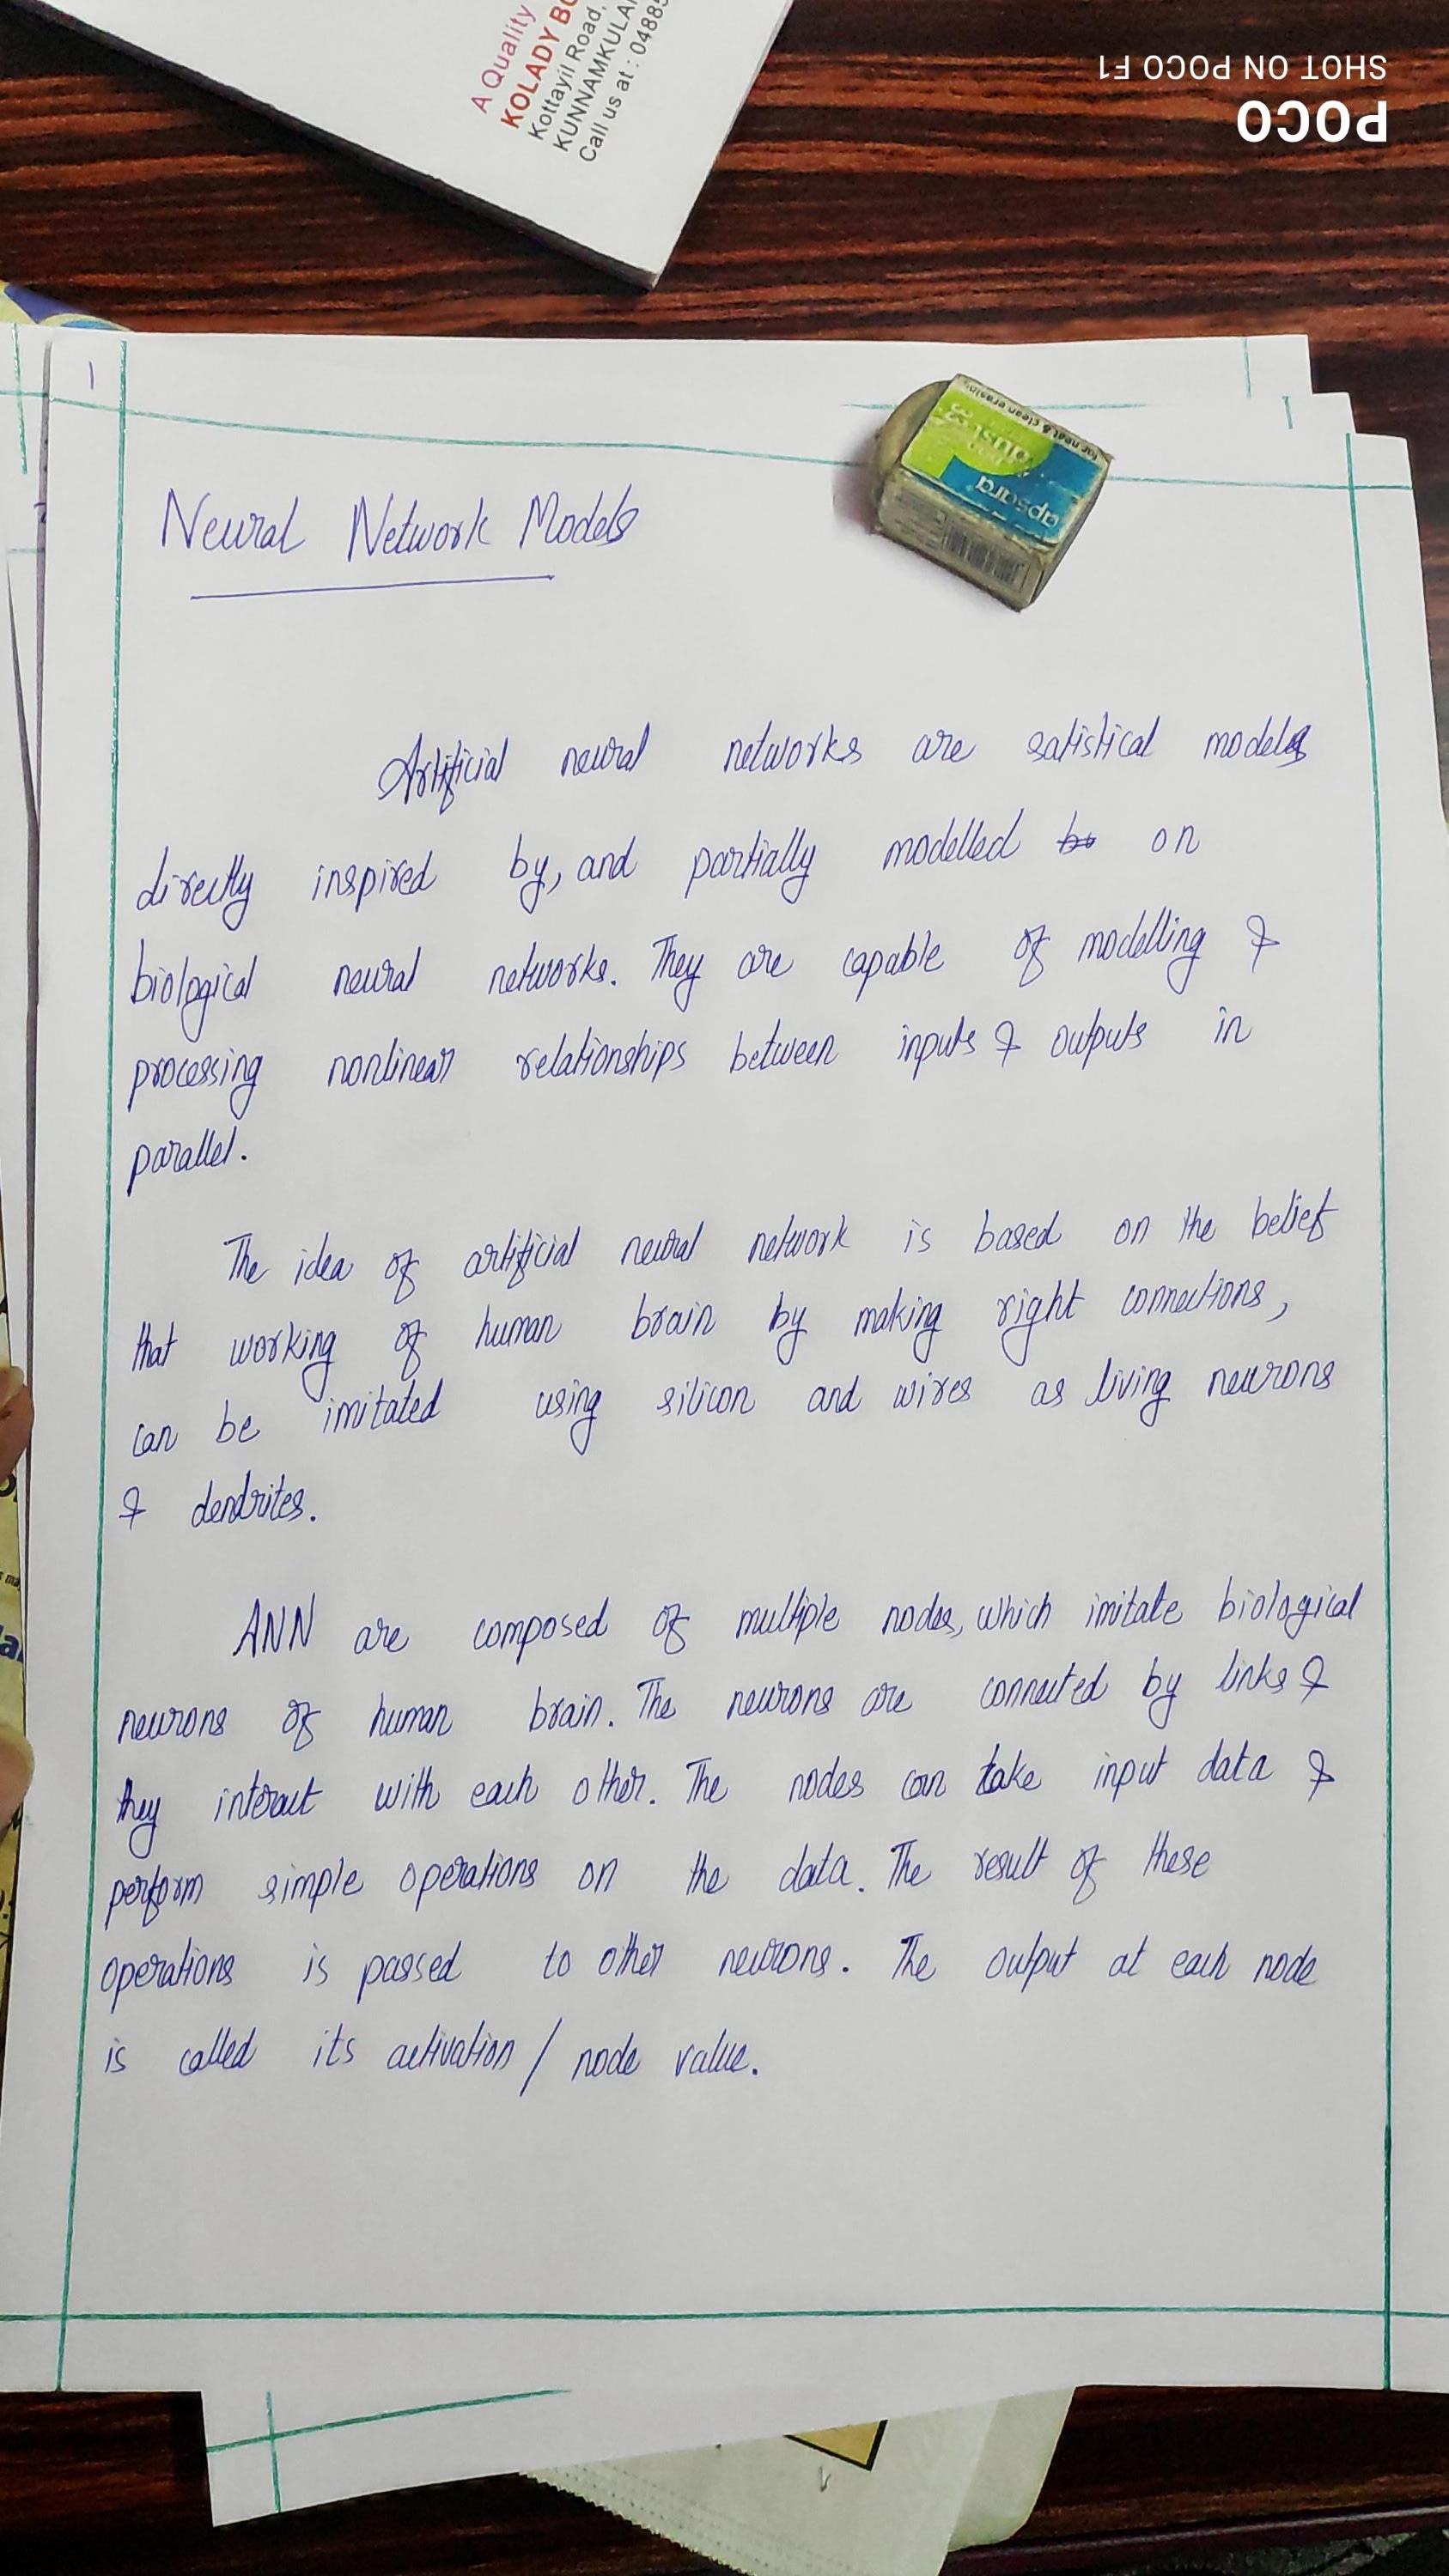 A Quality
KOLADY BO
Kottayil Road,
KUNNAMKULA
Call us at : 0488
SHOT ON POCO F1
POCO
1
for neat & clean erasing
dust
apsara
Neural Network Models
Artificial neural networks are satistical models
directly inspired by, and partially modelled on
biological neural networks. They are capable of modelling &
processing nonlinear relationships between inputs & outputs in
parallel.
The idea of artificial neural network is based on the belief
that working of human brain by making right connections,
can be imitated using silicon and wires as living neurons
& dendrites.
ANN are composed of multiple nodes, which imitate biological
neurons of human brain. The neurons are connected by links &
they interact with each other. The nodes can take input data &
perform simple operations on the data. The result of these
operations is passed to other neurons. The output at each node
is called its activation / node value.